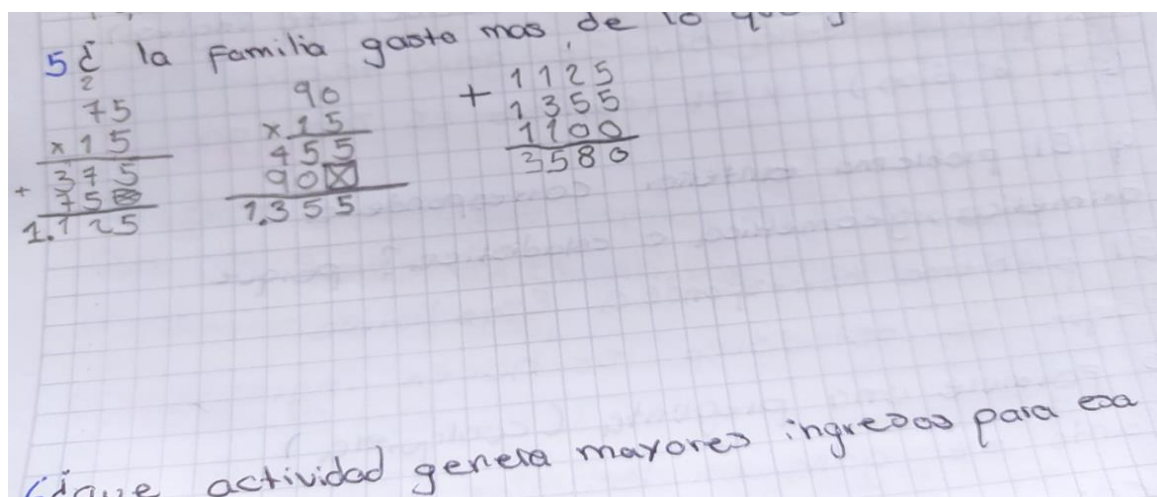 5 ¿ la familia gasta mas de lo
2
75
x 15
375
+ 75
1.125
90
x 15
455
90
1.355
+ 1125
1355
1100
3580
actividad genera mayores ingresos para esa